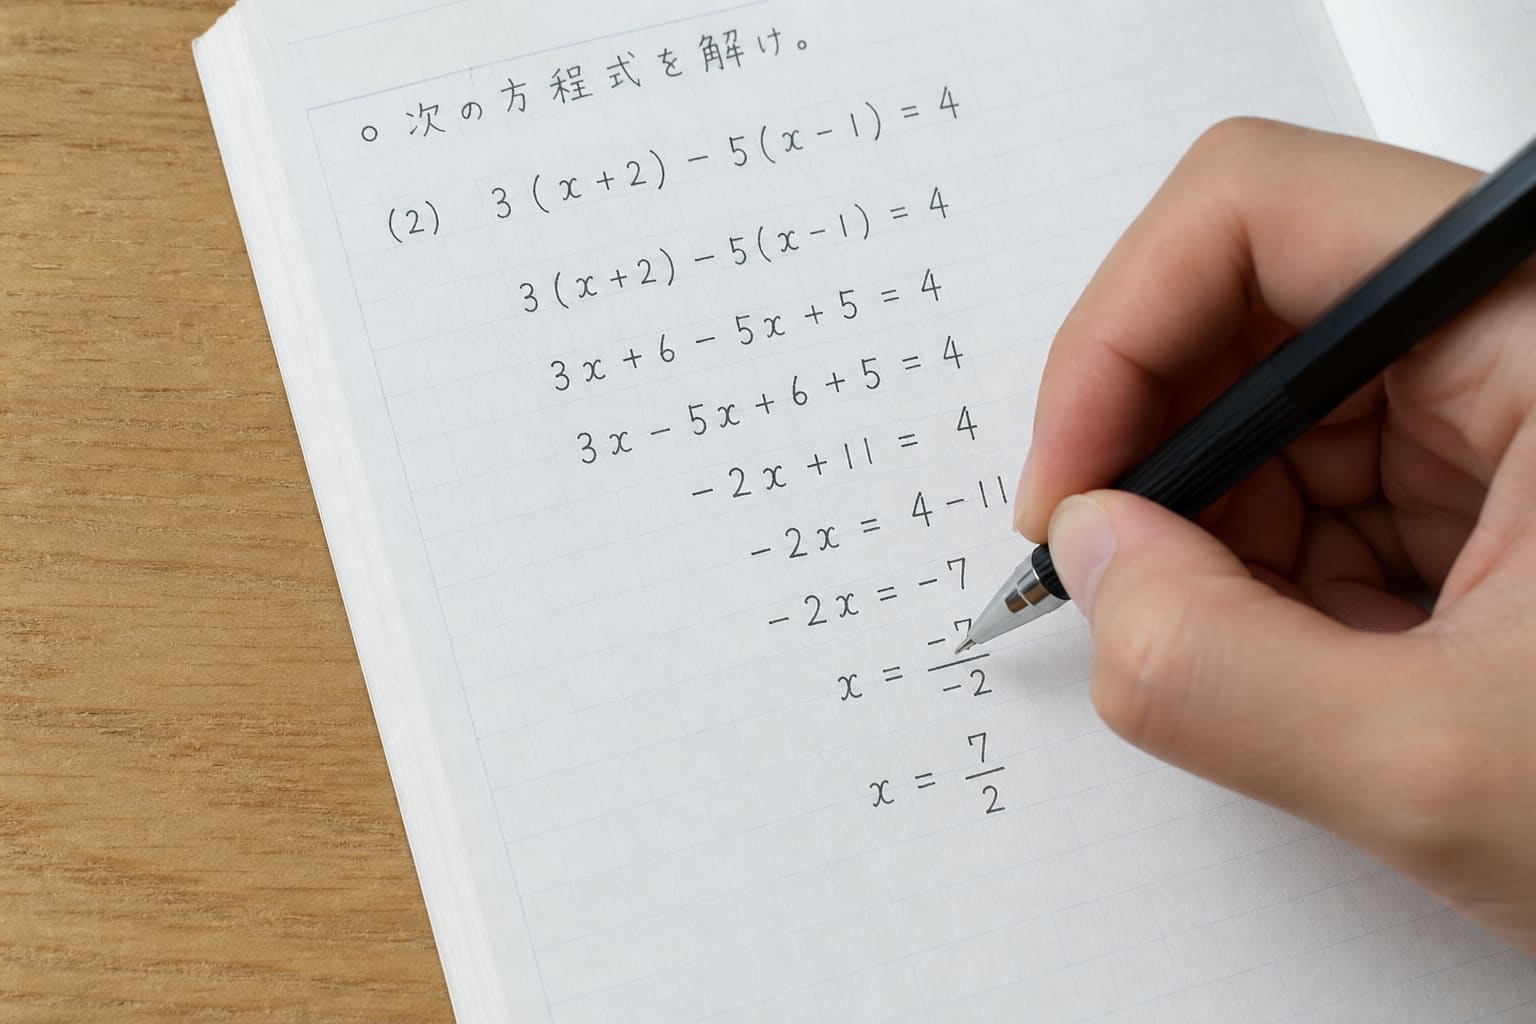 ○ 次の方程式を解け。
(2) 3(x+2)-5(x-1)=4
3(x+2)-5(x-1)=4
3x+6-5x+5=4
3x-5x+6+5=4
-2x+11=4
-2x=4-11
-2x=-7
x=\frac{-7}{-2}
x=\frac{7}{2}